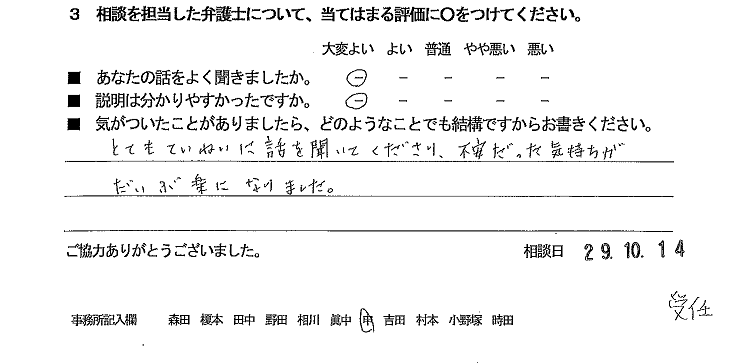 3 相談を担当した弁護士について、当てはまる評価に○をつけてください。
大変よい よい 普通 やや悪い 悪い
■ あなたの話をよく聞きましたか。 － － － － －
■ 説明は分かりやすかったですか。 － － － － －
■ 気がついたことがありましたら、どのようなことでも結構ですからお書きください。
とてもていねいに話を聞いてくださり、不安だった気持ちが
だいぶ楽になりました。
ご協力ありがとうございました。 相談日 29.10.14
受任
事務所記入欄 森田 榎本 田中 野田 相川 眞中 申 吉田 村本 小野塚 時田